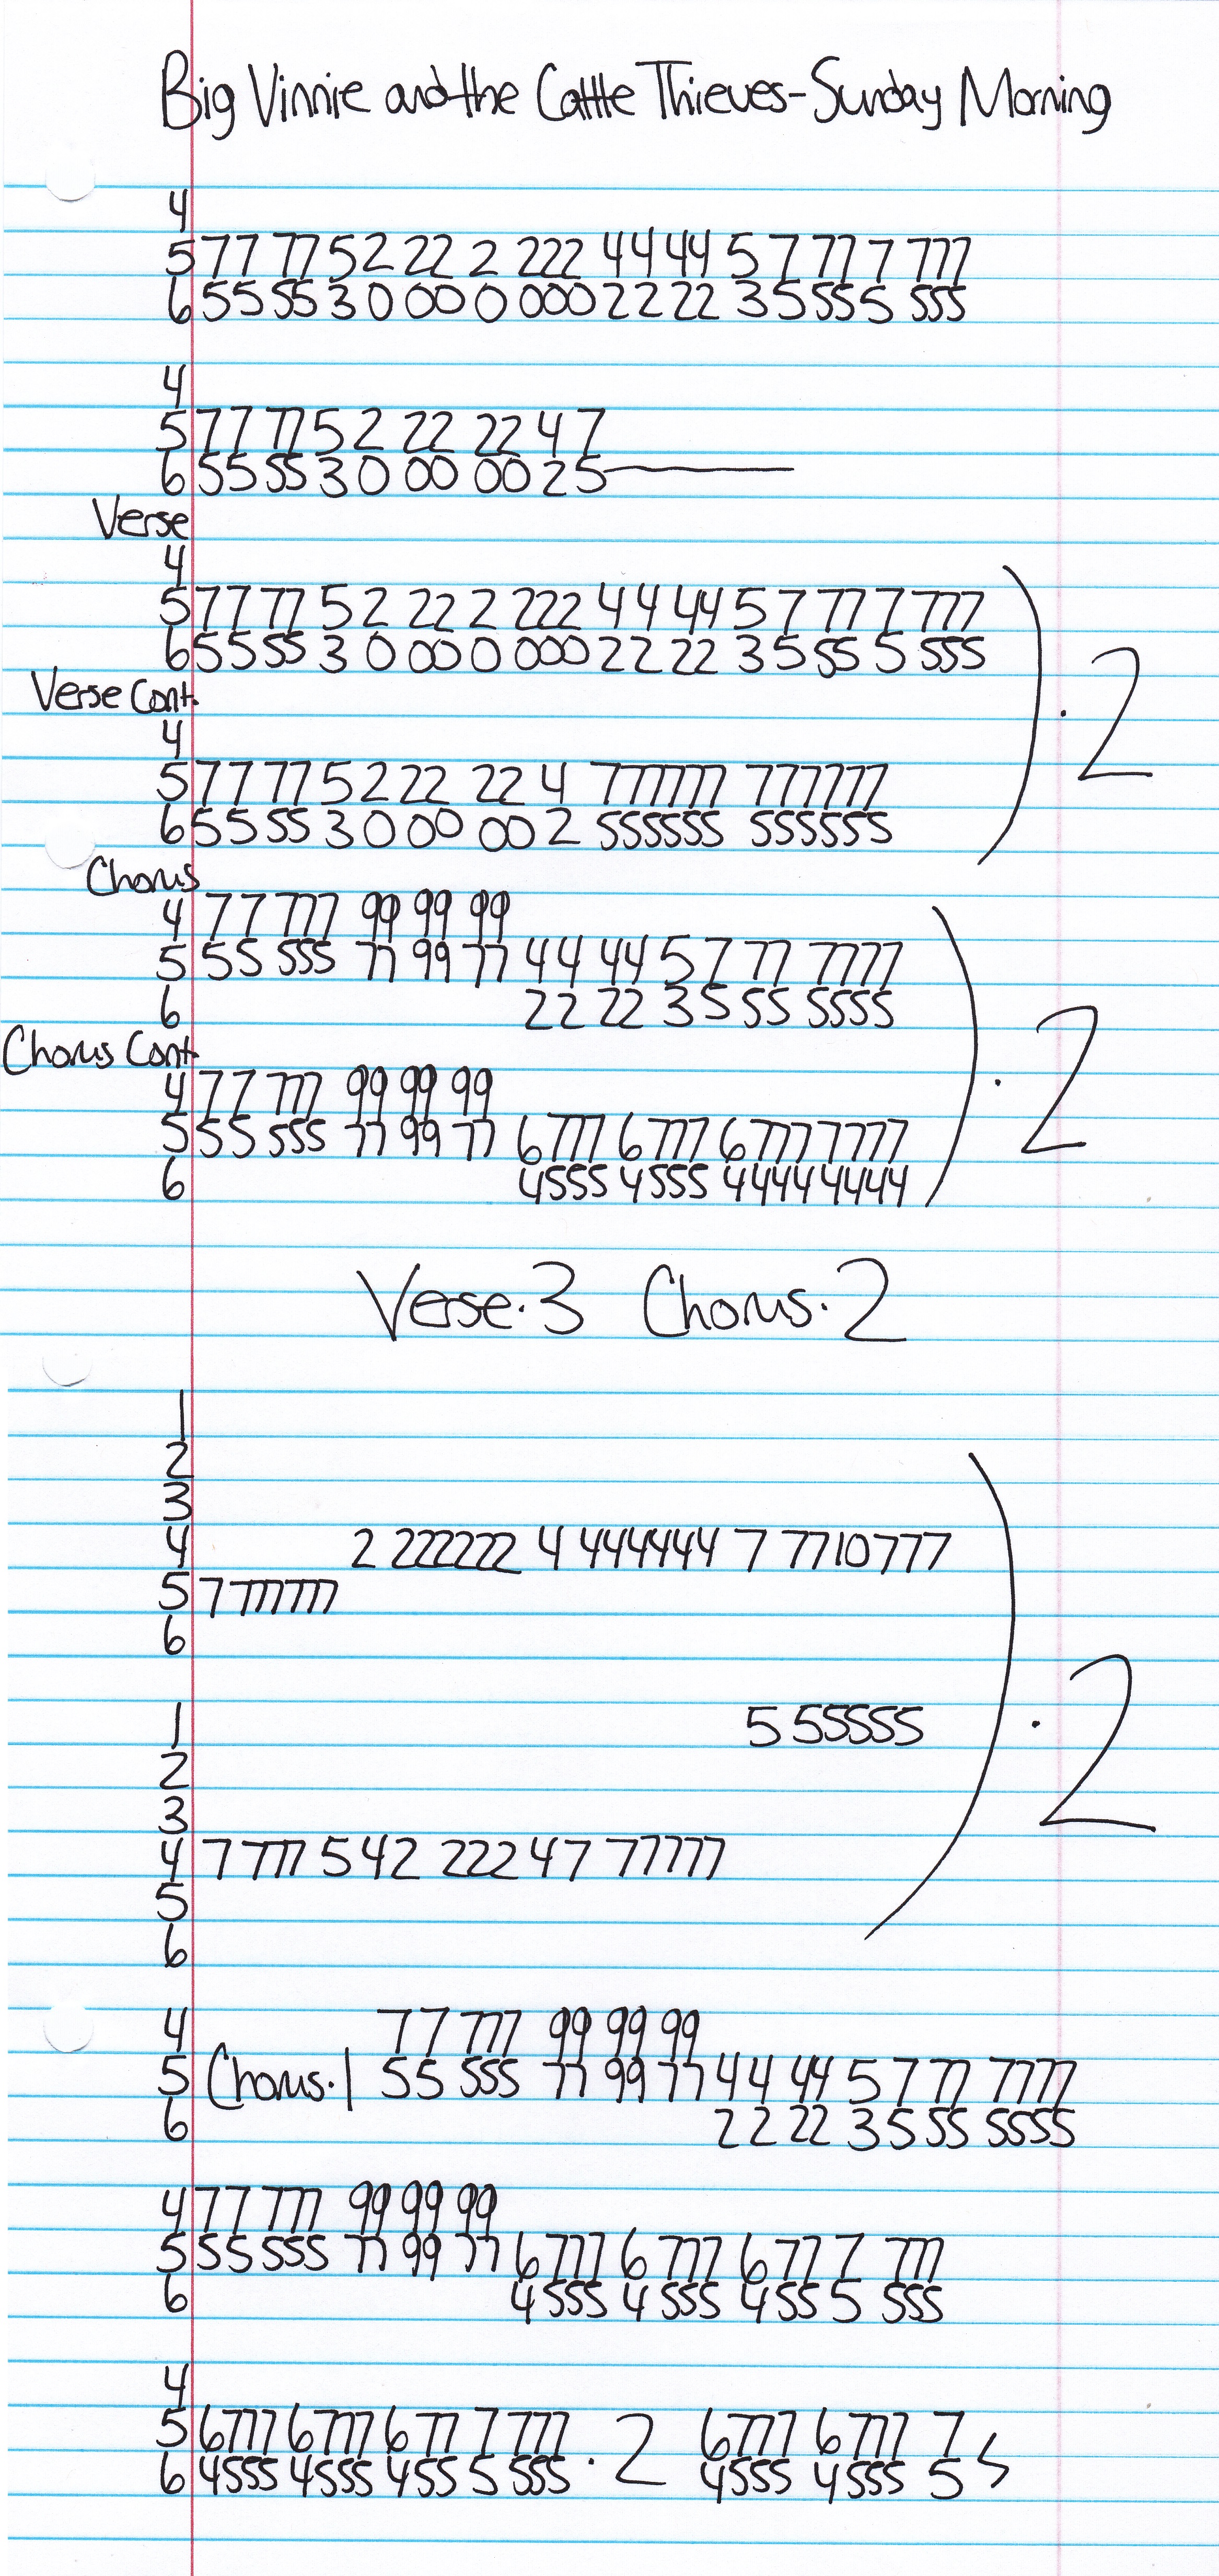 Big Vinnie and the Cattle Thieves-Sunday Morning
4
5 77 77 5 2 22 2 222 44 44 5 7 77 7 777
6 55 55 3 0 00 0 000 22 22 3 5 55 5 555
4
5 77 77 5 2 22 22 4 7
6 55 55 3 0 00 00 2 5
Verse
4
5 77 77 5 2 22 2 222 44 44 5 7 77 7 777
6 55 55 3 0 00 0 000 22 22 3 5 55 5 555
) . 2
Verse Cont.
4
5 77 77 5 2 22 22 4 777777 777777
6 55 55 3 0 00 00 2 555555 555555
Chorus
4 77 777 99 99 99
5 55 555 77 99 77 44 44 5 7 77 7777
6 22 22 3 5 55 5555
) . 2
Chorus Cont.
4 77 777 99 99 99
5 55 555 77 99 77 6777 6777 67777777
6 4555 4555 44444444
Verse.3 Chorus.2
1
2
3
4 2 222222 4 444444 7 7710777
5 7 777777
6
) . 2
1 5 55555
2
3
4 7 777 542 222 47 77777
5
6
4 77 777 99 99 99
5 Chorus.1 55 555 77 99 77 44 44 5 7 77 7777
6 22 22 3 5 55 5555
4 77 777 99 99 99
5 55 555 77 99 77 6777 6 777 677 7 777
6 4555 4 555 455 5 555
4
5 6777 6777 6 77 7 777 . 2 6777 6 777 7
6 4555 4555 455 5 555 4555 4555 5